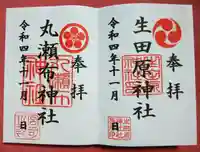 奉拝
生田原神社
令和四年十一月
日
奉拝
丸瀬布神社
令和四年十一月
日